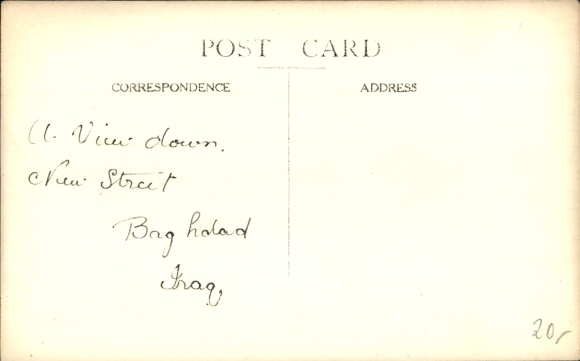 POST CARD
CORRESPONDENCE
ADDRESS
A View down.
New Street
Baghdad
Iraq,
20/